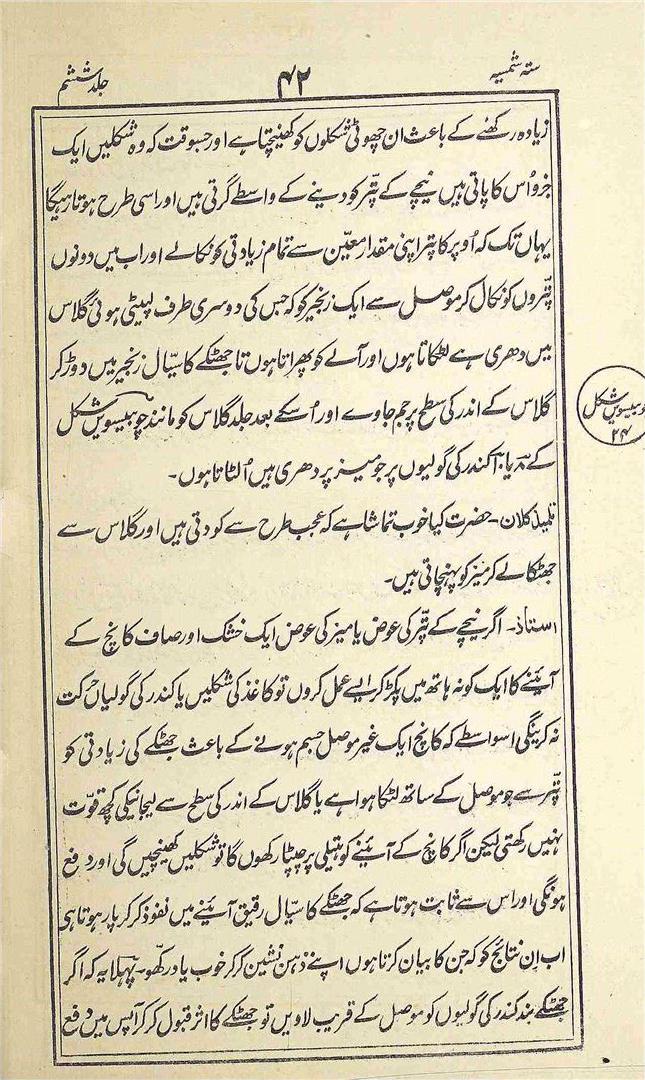 ستہ شمسیہ
۴۲
جلد ششم
زیادہ رکھنے کے باعث ان چھوٹی شکلوں کو کھینچتا ہے اور جسوقت کہ وہ شکلیں ایک
جزو اُس کا پاتی ہیں نیچے کے پتّر کو دینے کے واسطے گرتی ہیں اور اسی طرح ہوتا رہیگا
یہاں تک کہ اُوپر کا پتر اپنی مقدار معیّن سے تمام زیادتی کو نکالے اور اب میں دونوں
پتّروں کو نکال کر موصل سے ایک زنجیر کو کہ جس کی دوسری طرف لپیٹی ہوئی گلاس
میں دھری ہے لٹکاتا ہوں اور آلے کو پھراتا ہوں تا جھٹکے کا سیّال زنجیر میں دوڑ کر
گلاس کے اندر کی سطح پر جم جاوے اور اُسکے بعد جلد گلاس کو مانند چوبیسویں شکل
کے ۸ یا ۱۰ کندر کی گولیوں پر جو میز پر دھری ہیں اُلٹاتا ہوں۔
چوبیسویں شکل
۲۴
تلمیذ کلان۔ حضرت کیا خوب تماشا ہے کہ عجب طرح سے کودتی ہیں اور گلاس سے
جھٹکا لے کر میز کو پہنچاتی ہیں۔
استاذ۔ اگر نیچے کے پتّر کی عوض یا میز کی عوض ایک خشک اور صاف کانچ کے
آئینے کا ایک کونہ ہاتھ میں پکڑ کر ایسے عمل کروں تو کاغذ کی شکلیں یا کندر کی گولیاں حرکت
نہ کرینگی اسواسطے کہ کانچ ایک غیر موصل جسم ہونے کے باعث جھٹکے کی زیادتی کو
پتّر سے جو موصل کے ساتھ لٹکا ہوا ہے یا گلاس کے اندر کی سطح سے لیجانیکی کچھ قوّت
نہیں رکھتی لیکن اگر کانچ کے آئینے کو ہتیلی پر چپٹا رکھوں گا تو شکلیں کھینچیں گی اور دفع
ہونگی اور اس سے ثابت ہوتا ہے کہ جھٹکے کا سیّال رقیق آئینے میں نفوذ کر کر پار ہوتا ہی
اب اِن نتائج کو کہ جن کا بیان کرتا ہوں اپنے ذہن نشین کر کر خوب یاد رکّھو۔ پہلا یہ کہ اگر
جھٹکے بند کندر کی گولیوں کو موصل کے قریب لاویں تو جھٹکے کا اثر قبول کر کر آپس میں دفع